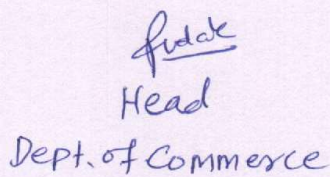 Head
Dept. of Commerce